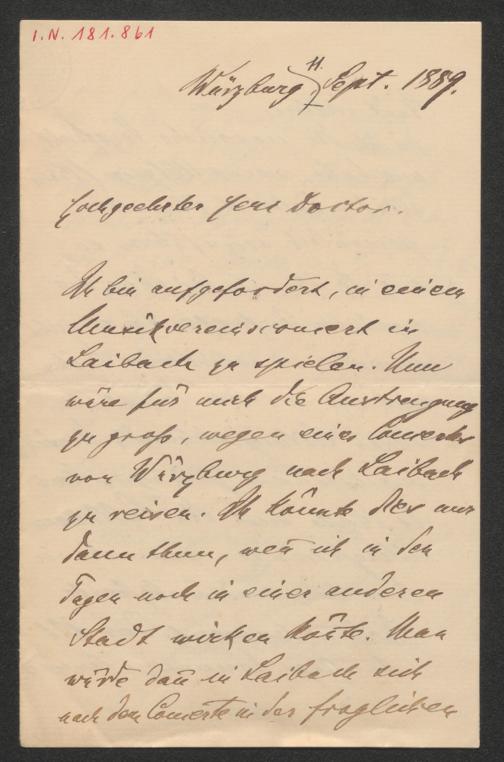 I.N. 181.861
Würzburg 11/7 Sept. 1889.
Hochgeehrter Herr Doctor.
Ich bin aufgefordert, in einem
Musikvereinsconcert in
Laibach zu spielen. Nun
wäre für mich die Anstrengung
zu groß, wegen eines Concertes
von Würzburg nach Laibach
zu reisen. Ich könnte dies nur
dann thun, wen̄ ich in den
Tagen noch in einer anderen
Stadt wirken kön̄te. Man
würde dan̄ in Laibach sich
nach dem Concerte in der fraglichen